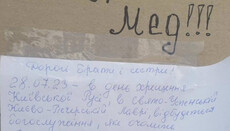 Мед!!!
Дорогі брати і сестри!
28.07.23 – в день хрещення
"Київської Русі", в свято-Успенській
Києво-Печерській лаврі, відбудеться
богослужіння, на